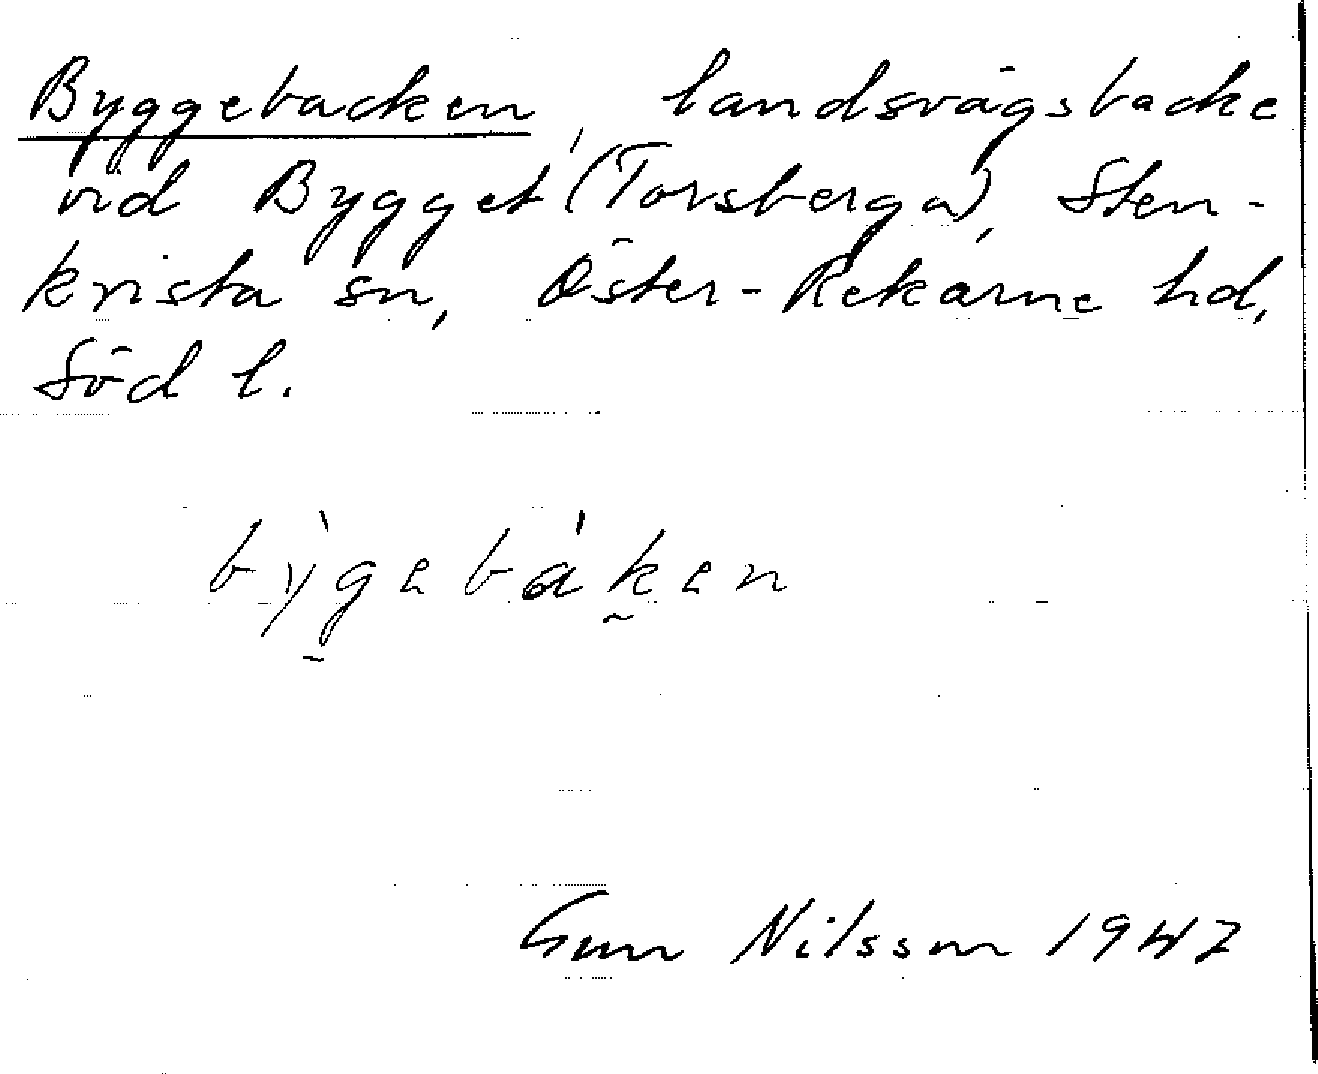 Byggebacken, landsvägsbacke
vid Bygget (Torsberga), Sten-
krista sn, Öster-Rekarne hd,
Söd l.
bỳgebáken
Gun Nilsson 1947